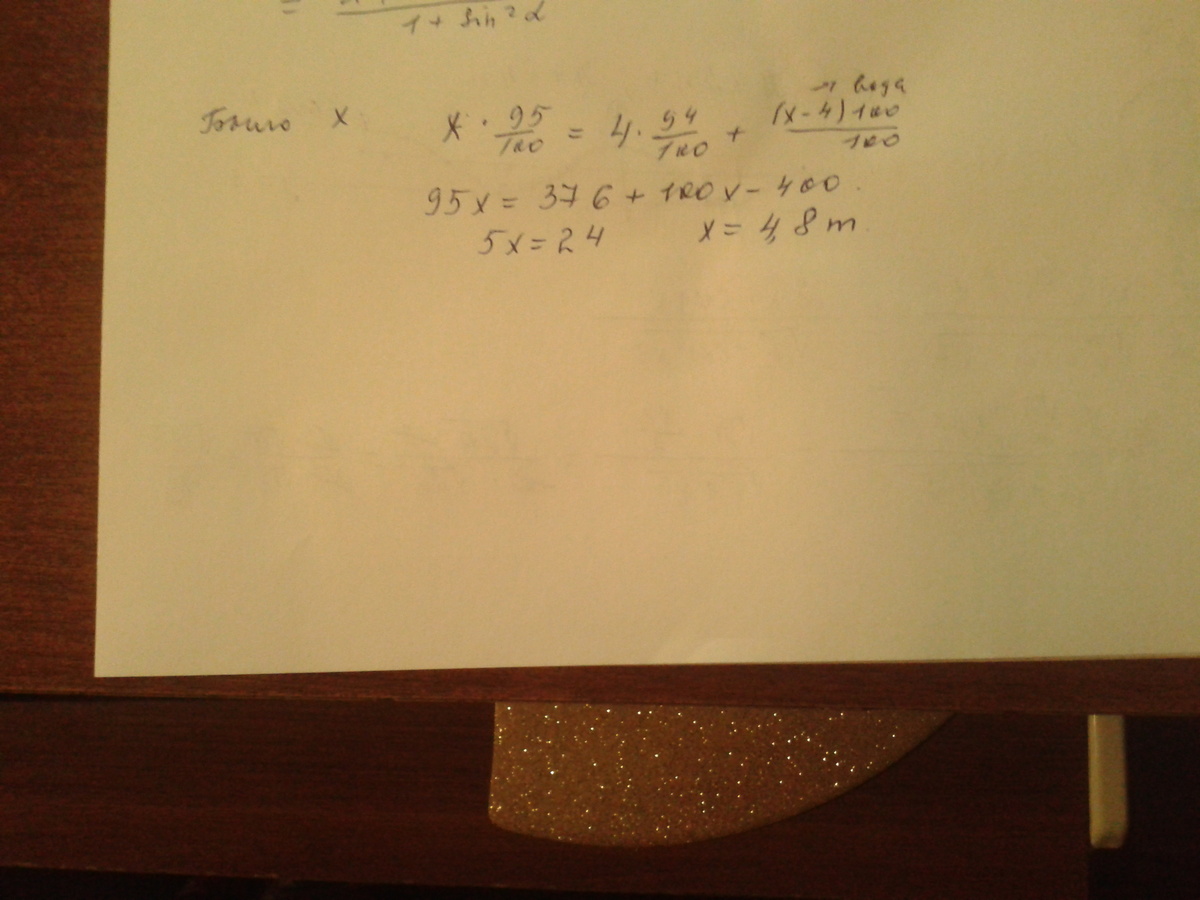 = 
1 + sin²α
→ вода
Было x x · 95/100 = 4 · 94/100 + (x-4)100/100
95x = 376 + 100x - 400.
5x = 24 x = 4,8 т.